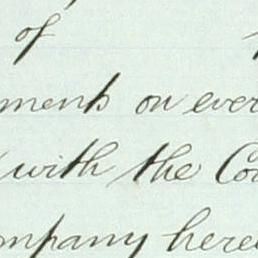 of
ments on ever
with the Co
ompany here